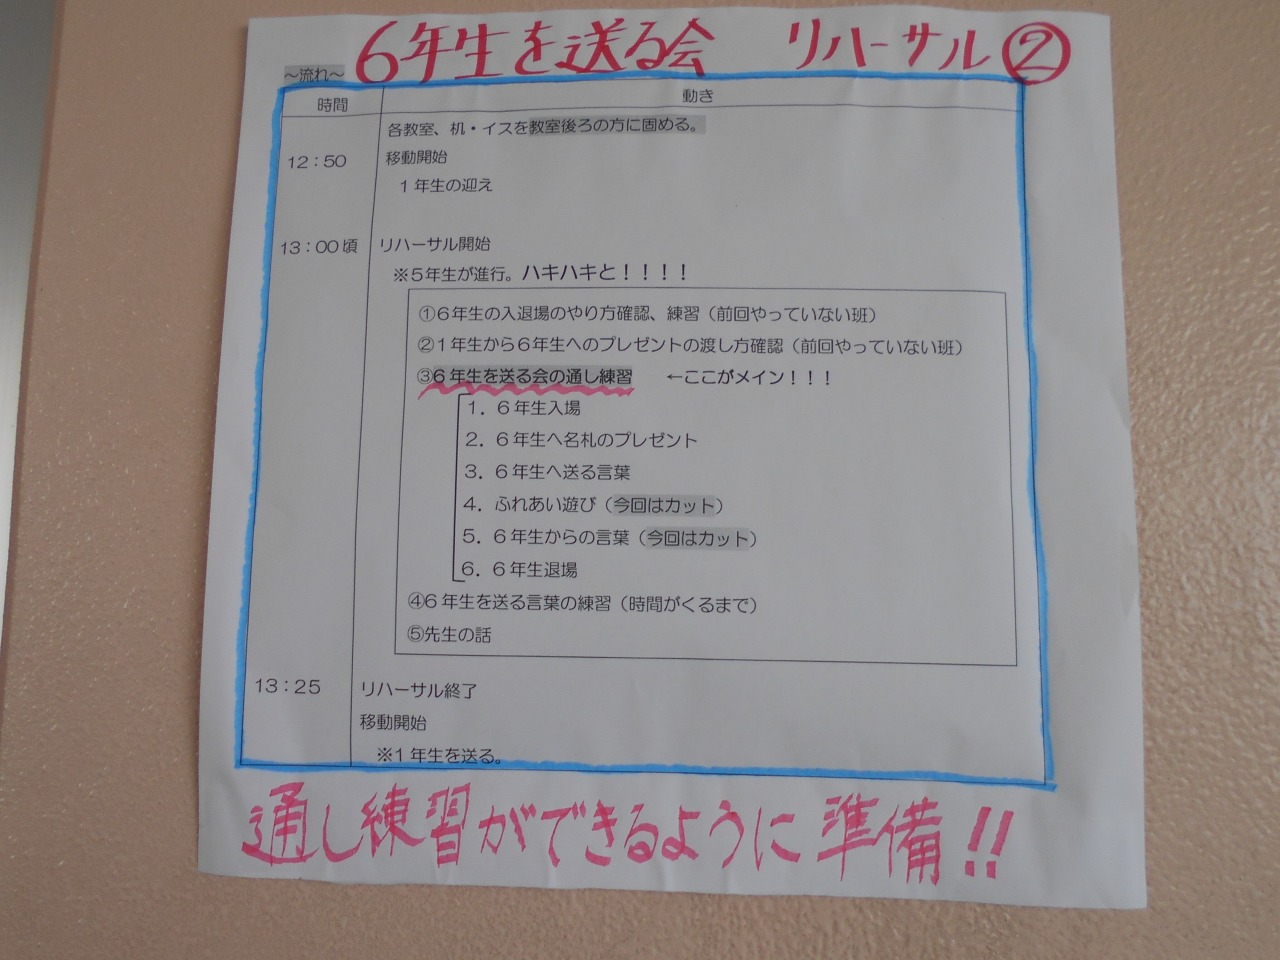 6年生を送る会　リハーサル②
～流れ～
時間　動き
各教室、机・イスを教室後ろの方に固める。
12：50　移動開始
1年生の迎え
13：00頃　リハーサル開始
※5年生が進行。ハキハキと！！！！
①6年生の入退場のやり方確認、練習（前回やっていない班）
②1年生から6年生へのプレゼントの渡し方確認（前回やっていない班）
③6年生を送る会の通し練習　←ここがメイン！！！
1．6年生入場
2．6年生へ名札のプレゼント
3．6年生へ送る言葉
4．ふれあい遊び（今回はカット）
5．6年生からの言葉（今回はカット）
6．6年生退場
④6年生を送る言葉の練習（時間がくるまで）
⑤先生の話
13：25　リハーサル終了
移動開始
※1年生を送る。
通し練習ができるように準備!!